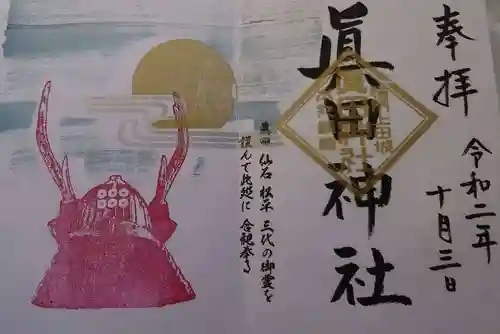 奉拝
令和二年
十月三日
眞田神社
眞田 仙石 松平 三代の御霊を
謹んで此処に合祀奉る